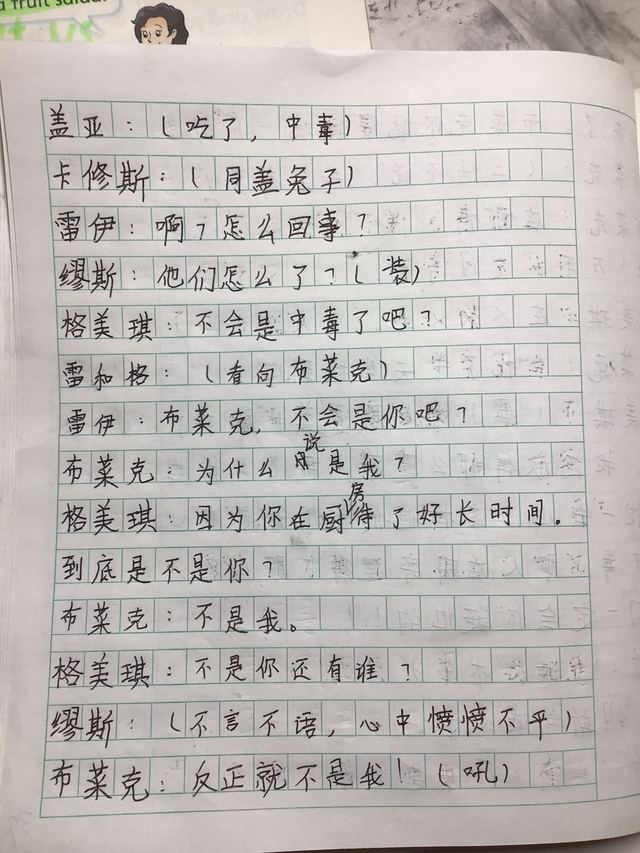 a fruit salad.
盖亚：（吃了，中毒）
卡修斯：（同盖兔子）
雷伊：啊？怎么回事？
缪斯：他们怎么了？（装）
格美琪：不会是中毒了吧？
雷和格：（看向布莱克）
雷伊：布莱克，不会是你吧？
布莱克：为什么说是我？
格美琪：因为你在厨房待了好长时间。
到底是不是你？
布莱克：不是我。
格美琪：不是你还有谁？
缪斯：（不言不语，心中愤愤不平）
布莱克：反正就不是我！（吼）